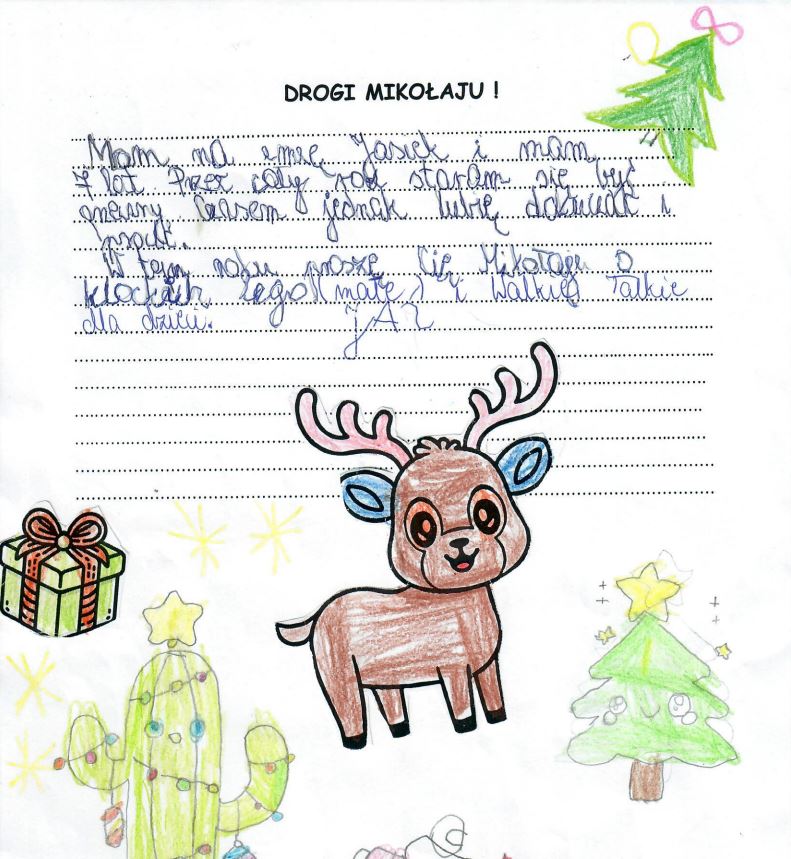 DROGI MIKOŁAJU !
Mam na imię Jasiek i mam
7 lat. Przez cały rok staram się być
Czasem jednak lubię dokuczać i
W tym roku proszę Cię Mikołaju o
klocki lego (małe) i Walkie Talkie
dla dzieci. JAŚ